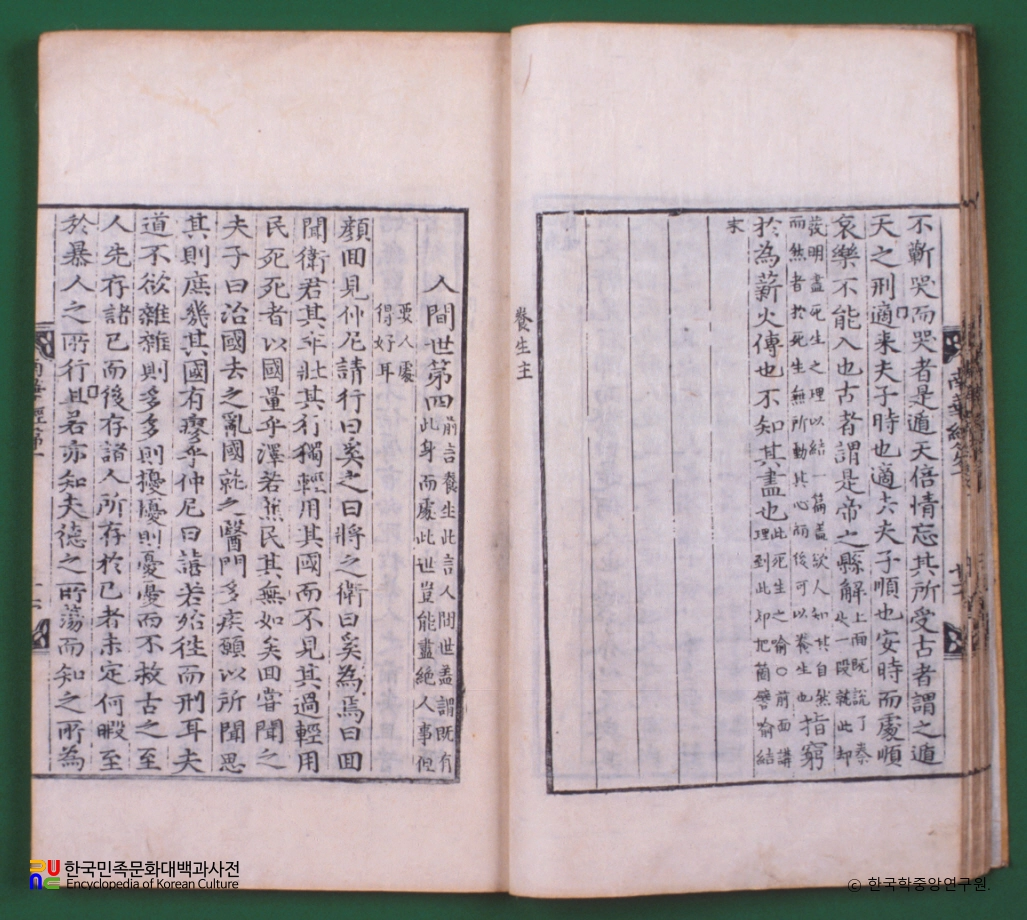 不蘄哭而哭者是遁天倍情忘其所受古者謂之遁
天之刑適来夫子時也適去夫子順也安時而處順
哀樂不能入也古者謂是帝之縣解上面既說了秦
此一段就此却
發明盡死生之理以結一篇蓋欲人知其自然
而然者於死生無所動其心而後可以養生也指窮
於為薪火傳也不知其盡也此死生之喻○前面講
理到此却把箇譬喻結
末
養生主
人間世第四前言養生此言人間世盖謂既有
此身而處此世豈能盡絶人事但
要人處
得好耳
顔回見仲尼請行曰奚之曰將之衛曰奚為焉曰回
聞衛君其年壯其行獨輕用其國而不見其過輕用
民死死者以國量乎澤若蕉民其無如矣回嘗聞之
夫子曰治國去之亂國就之醫門多疾願以所聞思
其則庶幾其國有瘳乎仲尼曰譆若殆徃而刑耳夫
道不欲雜雜則多多則擾擾則憂憂而不救古之至
人先存諸己而後存諸人所存於己者未定何暇至
於暴人之所行且若亦知夫德之所蕩而知之所為
南華經
한국민족문화대백과사전
Encyclopedia of Korean Culture
© 한국학중앙연구원.